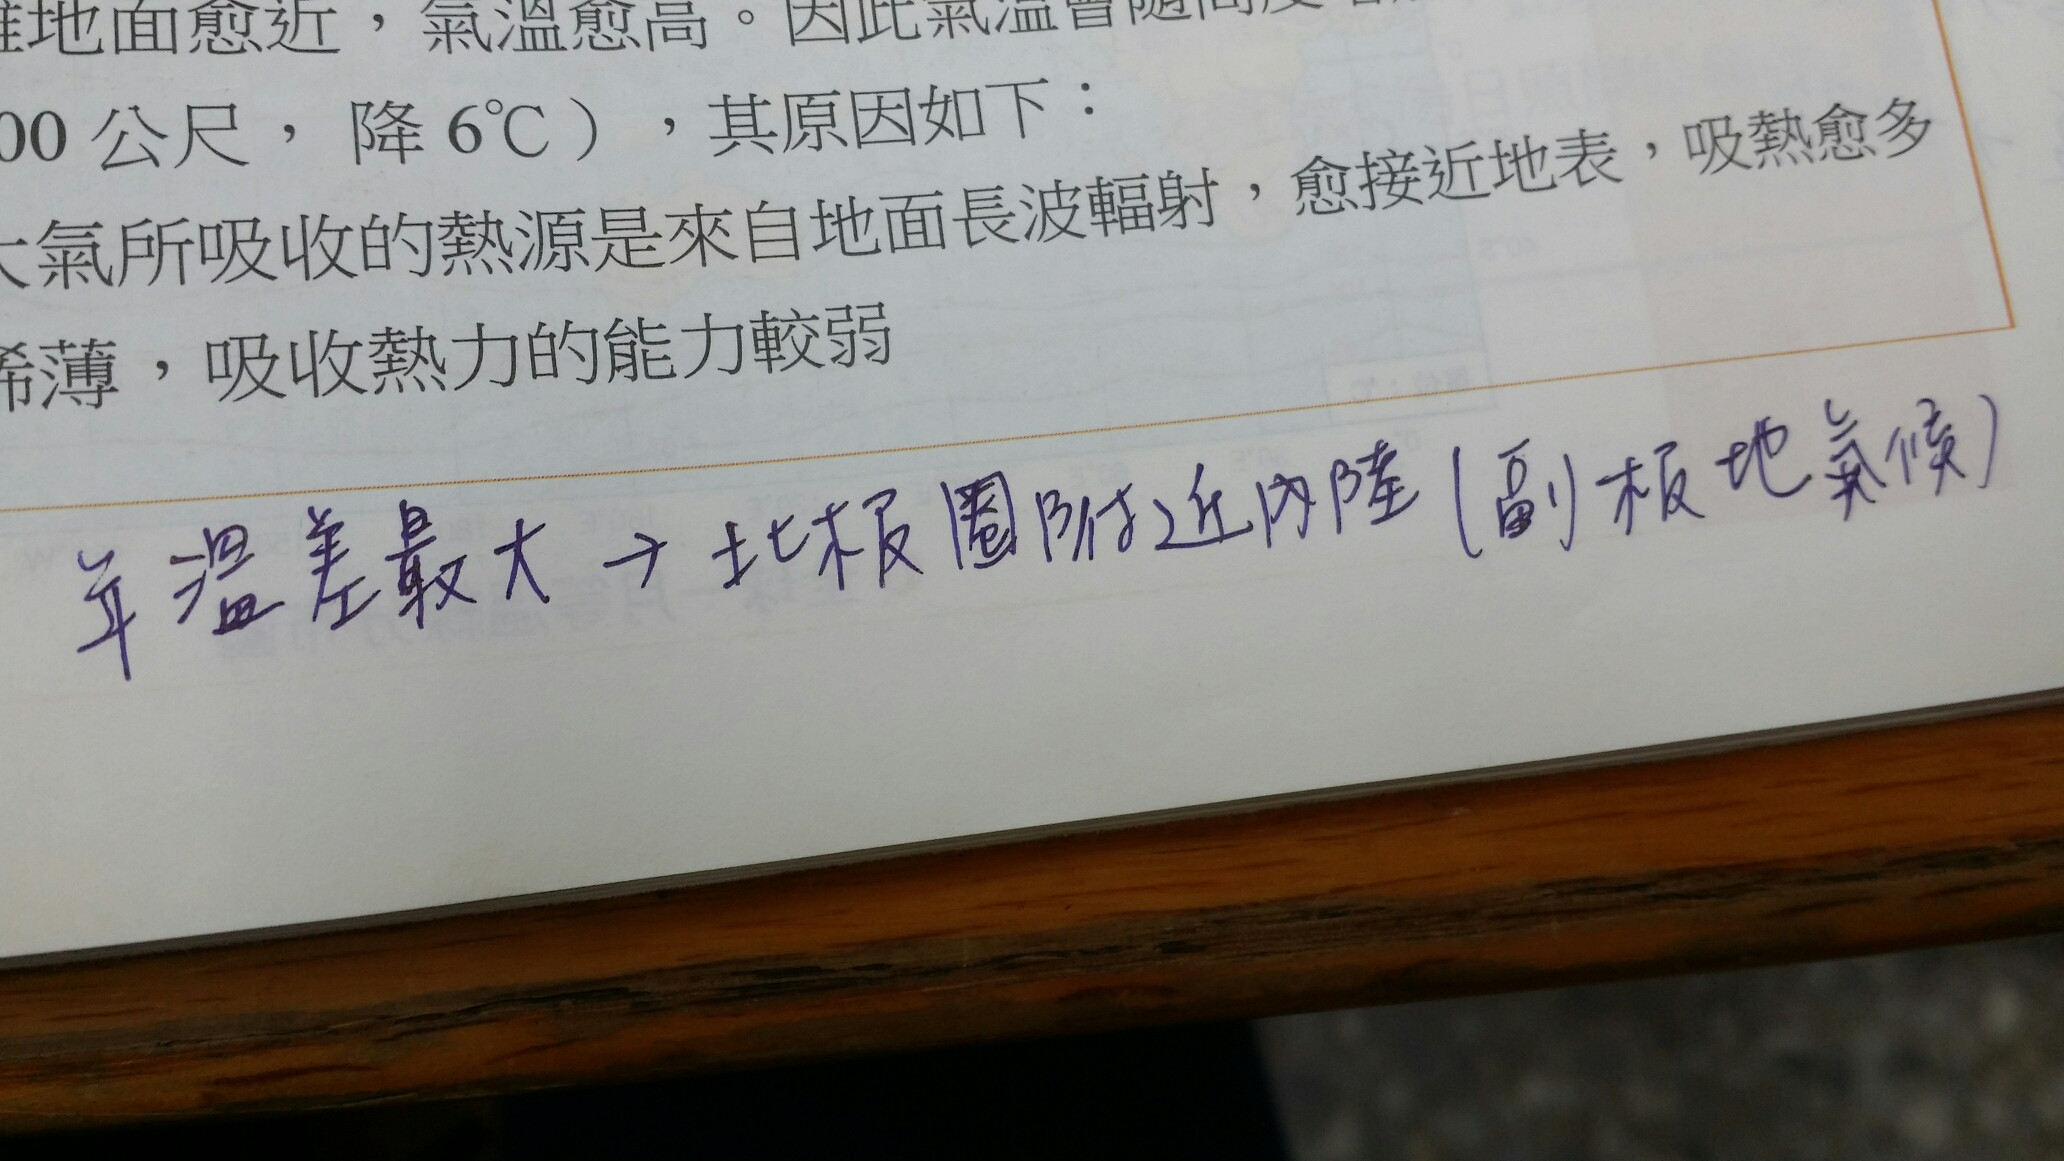 地面愈近，氣溫愈高。因此氣溫會隨高度
00 公尺， 降 6℃），其原因如下：
大氣所吸收的熱源是來自地面長波輻射，愈接近地表，吸熱愈多
稀薄，吸收熱力的能力較弱
年溫差最大→北板圈附近內陸(副板地氣候)